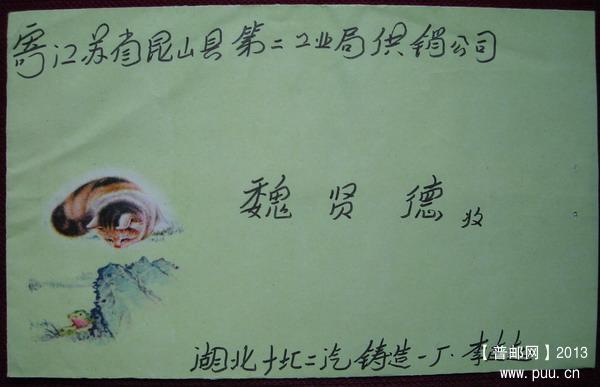 寄江苏省昆山县第二工业局供销公司
魏贤德 收
湖北十堰二汽铸造一厂·李
【普邮网】2013
www.puu.cn